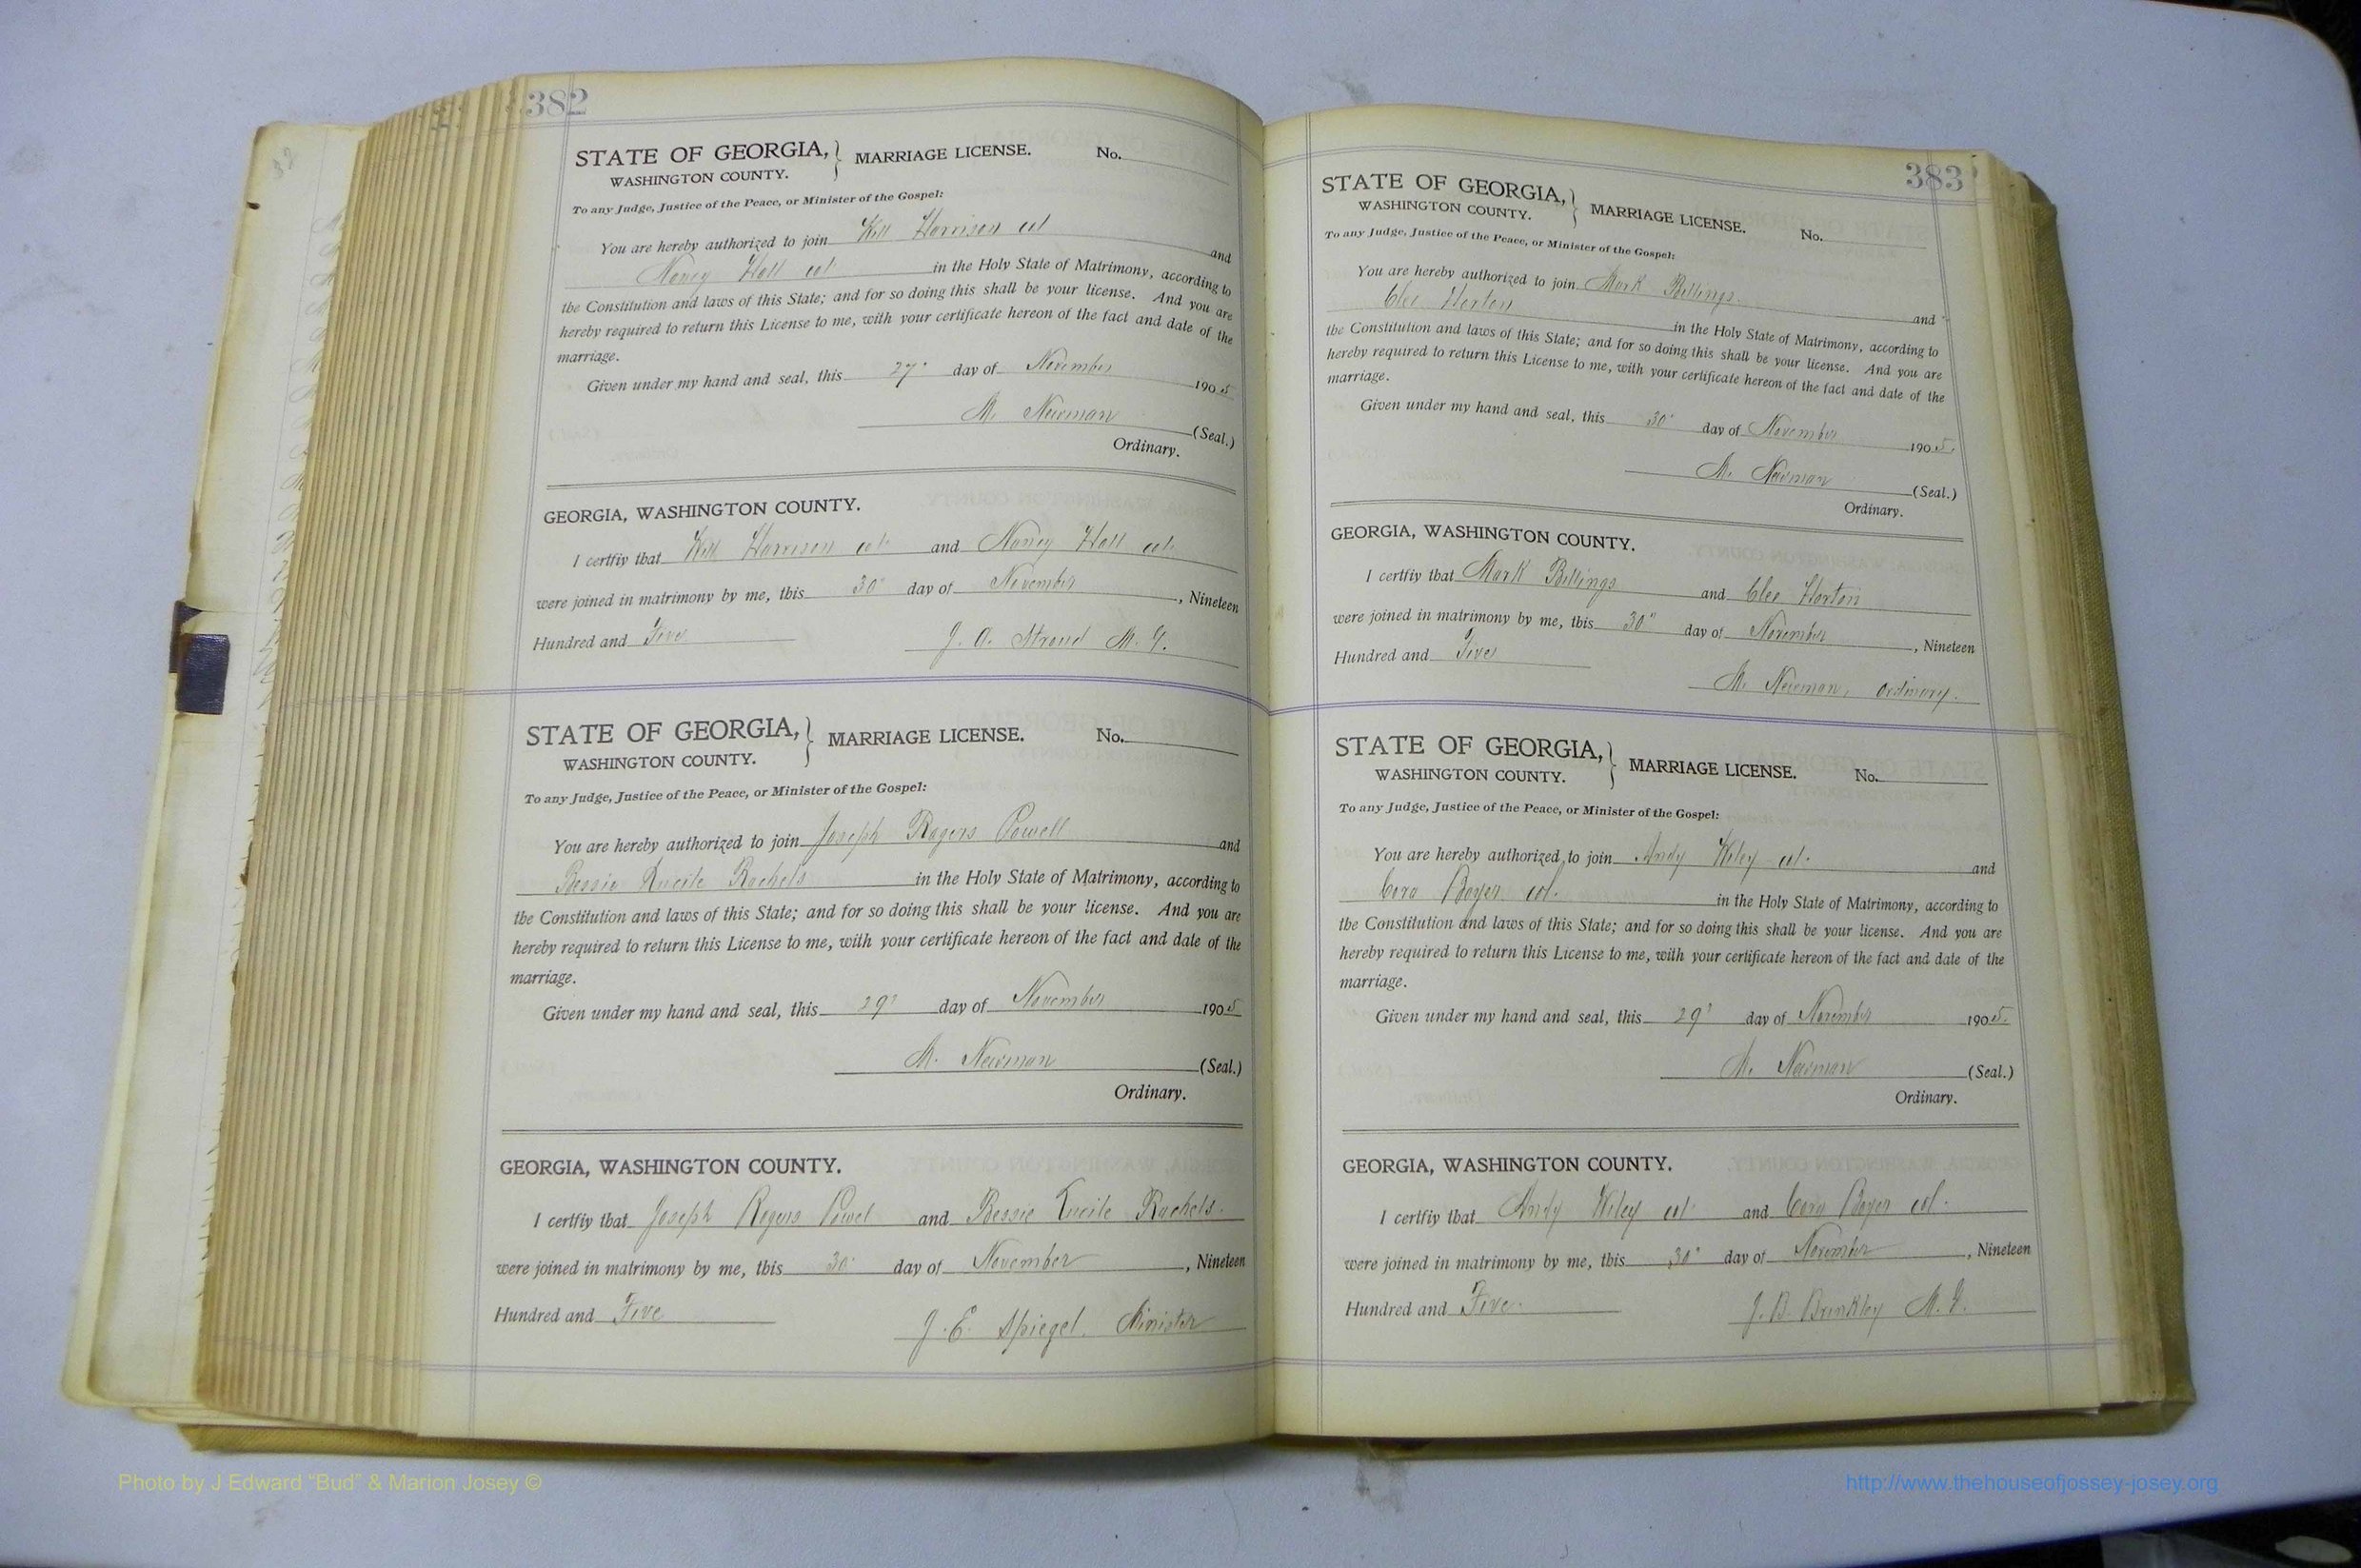 382
STATE OF GEORGIA, } MARRIAGE LICENSE. No.
WASHINGTON COUNTY.
To any Judge, Justice of the Peace, or Minister of the Gospel:
You are hereby authorized to join Will Harrison col and
Nancy Hall col in the Holy State of Matrimony, according to
the Constitution and laws of this State; and for so doing this shall be your license. And you are
hereby required to return this License to me, with your certificate hereon of the fact and date of the
marriage.
Given under my hand and seal, this 27" day of November 1905
M. Newman (Seal.)
Ordinary.
GEORGIA, WASHINGTON COUNTY.
I certfiy that Will Harrison col and Nancy Hall col.
were joined in matrimony by me, this 30" day of November, Nineteen
Hundred and Five J. A. Stroud M. G.
STATE OF GEORGIA, } MARRIAGE LICENSE. No.
WASHINGTON COUNTY.
To any Judge, Justice of the Peace, or Minister of the Gospel:
You are hereby authorized to join Joseph Rogers Powell and
Bessie Lucile Rachels in the Holy State of Matrimony, according to
the Constitution and laws of this State; and for so doing this shall be your license. And you are
hereby required to return this License to me, with your certificate hereon of the fact and date of the
marriage.
Given under my hand and seal, this 29" day of November 1905
M. Newman (Seal.)
Ordinary.
GEORGIA, WASHINGTON COUNTY.
I certfiy that Joseph Rogers Powel and Bessie Lucile Rachels.
were joined in matrimony by me, this 30" day of November, Nineteen
Hundred and Five J. E. Spiegel. Minister
383
STATE OF GEORGIA, } MARRIAGE LICENSE. No.
WASHINGTON COUNTY.
To any Judge, Justice of the Peace, or Minister of the Gospel:
You are hereby authorized to join Mark Billings and
Cleo Horton in the Holy State of Matrimony, according to
the Constitution and laws of this State; and for so doing this shall be your license. And you are
hereby required to return this License to me, with your certificate hereon of the fact and date of the
marriage.
Given under my hand and seal, this 30" day of November 1905.
M. Newman (Seal.)
Ordinary.
GEORGIA, WASHINGTON COUNTY.
I certfiy that Mark Billings and Cleo Horton
were joined in matrimony by me, this 30" day of November, Nineteen
Hundred and Five
M. Newman, Ordinary.
STATE OF GEORGIA, } MARRIAGE LICENSE. No.
WASHINGTON COUNTY.
To any Judge, Justice of the Peace, or Minister of the Gospel:
You are hereby authorized to join Andy Wiley col. and
Cora Boyer col. in the Holy State of Matrimony, according to
the Constitution and laws of this State; and for so doing this shall be your license. And you are
hereby required to return this License to me, with your certificate hereon of the fact and date of the
marriage.
Given under my hand and seal, this 29" day of November 1905.
M. Newman (Seal.)
Ordinary.
GEORGIA, WASHINGTON COUNTY.
I certfiy that Andy Wiley col and Cora Boyer col.
were joined in matrimony by me, this 30" day of November, Nineteen
Hundred and Five. J. B. Brinkley M. G.
Photo by J Edward “Bud” & Marion Josey ©
http://www.thehouseofjossey-josey.org